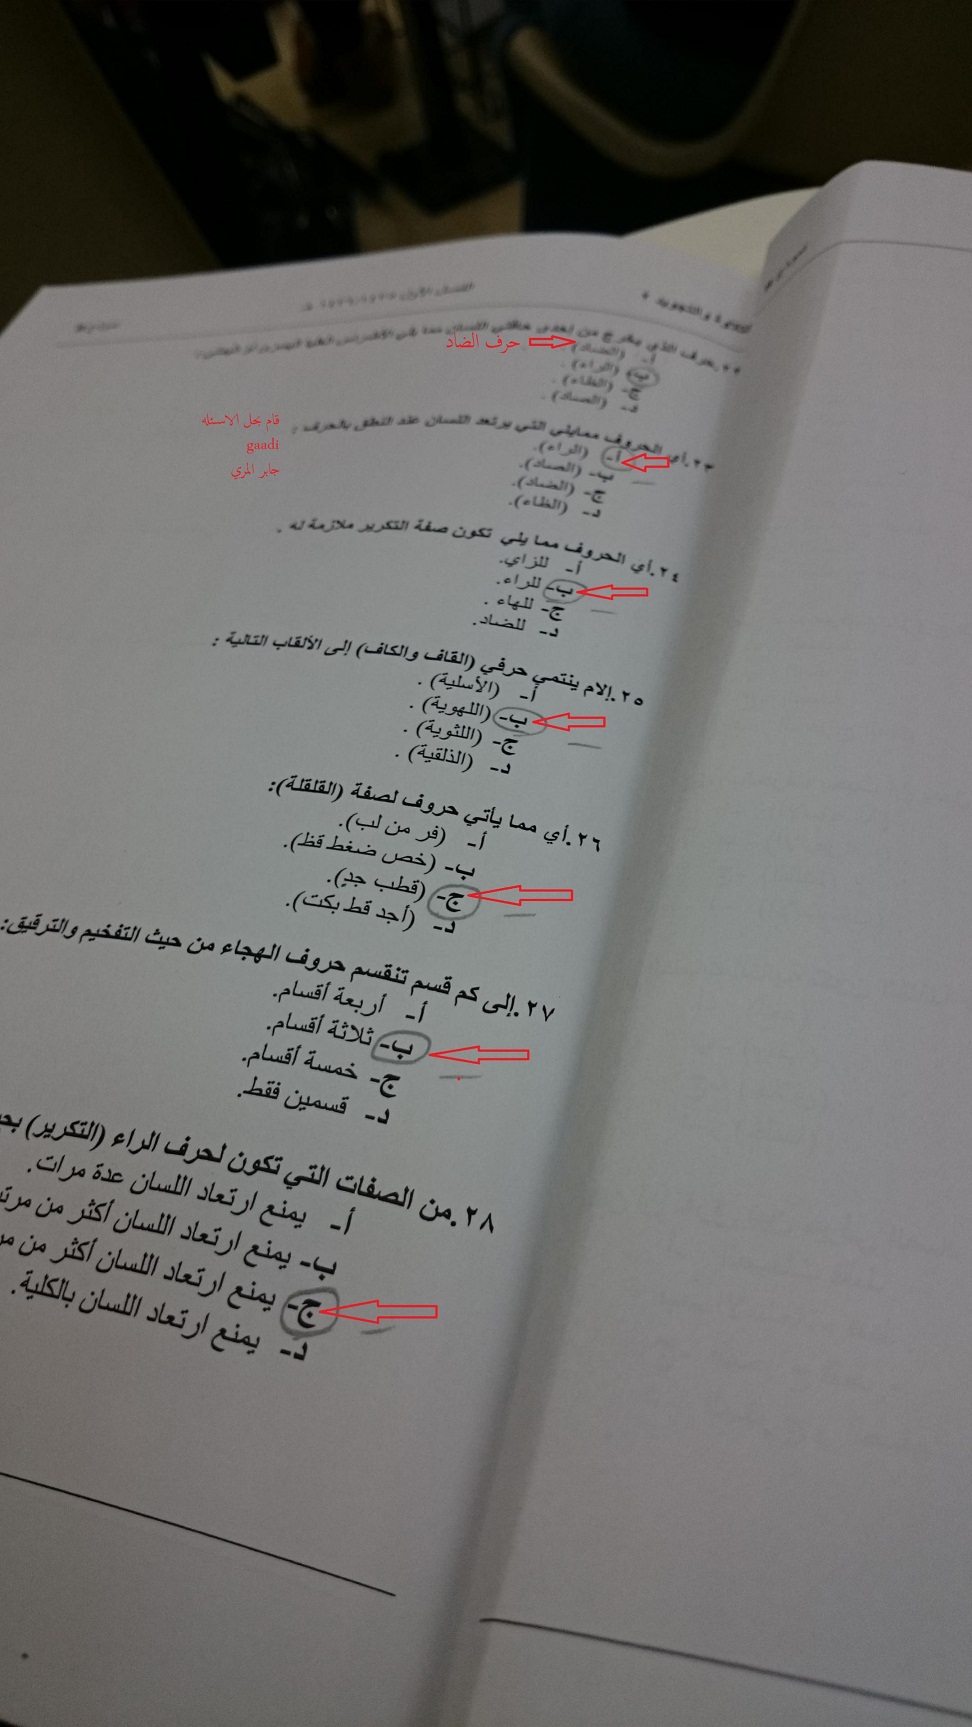 التلاوة والتجويد ٢
الفصل الأول ١٤٣٥/١٤٣٦ هـ
٢٢.حرف الذي يخرج من إحدى حافتي اللسان مما يلي الأضراس العليا
أ- (الضاد).
حرف الضاد
ب- (الراء).
ج- (الظاء).
د- (الصاد).
٢٣.أي الحروف ممايلي التي يرتعد اللسان عند النطق بالحرف :
أ- (الراء).
ب- (الصاد).
ج- (الضاد).
د- (الظاء).
قام بحل الاسئله
gaadi
جابر المري
٢٤.أي الحروف مما يلي تكون صفة التكرير ملازمة له .
أ- للزاي.
ب- للراء.
ج- للهاء .
د- للضاد.
٢٥.إلام ينتمي حرفي (القاف والكاف) إلى الألقاب التالية :
أ- (الأسلية) .
ب- (اللهوية) .
ج- (اللثوية) .
د- (الذلقية) .
٢٦.أي مما يأتي حروف لصفة (القلقلة):
أ- (فر من لب).
ب- (خص ضغط قظ).
ج- (قطب جدٍ).
د- (أجد قط بكت).
٢٧.إلى كم قسم تنقسم حروف الهجاء من حيث التفخيم والترقيق:
أ- أربعة أقسام.
ب- ثلاثة أقسام.
ج- خمسة أقسام.
د- قسمين فقط.
٢٨.من الصفات التي تكون لحرف الراء (التكرير)
أ- يمنع ارتعاد اللسان عدة مرات.
ب- يمنع ارتعاد اللسان أكثر من
ج- يمنع ارتعاد اللسان أكثر من
د- يمنع ارتعاد اللسان بالكلية.